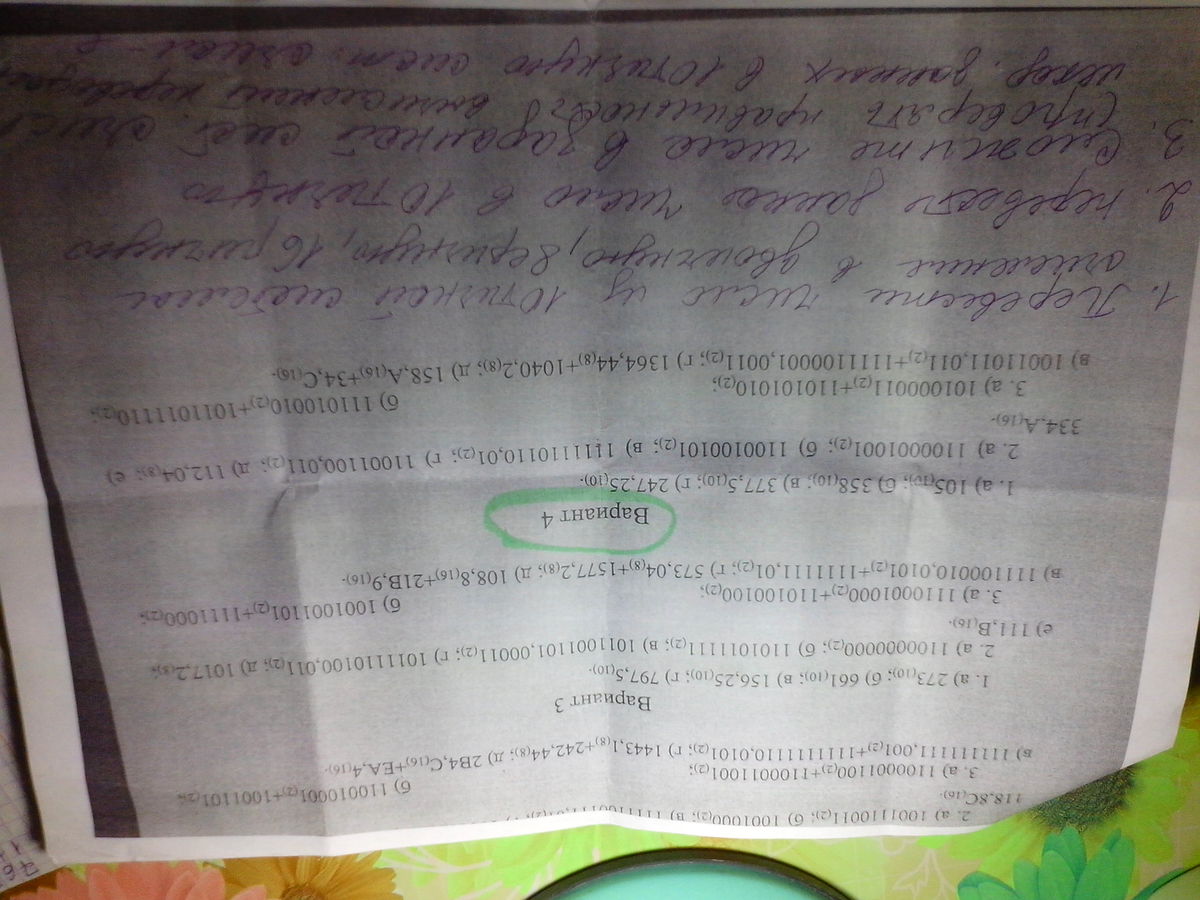 2. а) 1001110011(2); б) 1001000(2); в)
118,8C(16).
3. а) 1100001100(2)+1100011001(2); б) 110010001(2)+1001101(2);
в) 111111111,001(2)+1111111110,0101(2); г) 1443,1(8)+242,44(8); д) 2B4,C(16)+EA,4(16).
Вариант 3
1. а) 273(10); б) 661(10); в) 156,25(10); г) 797,5(10).
2. а) 1100000000(2); б) 1101011111(2); в) 1011001101,00011(2); г) 1011110100,011(2); д) 1017,2(8);
е) 111,B(16).
3. а) 1110001000(2)+110100100(2); б) 1001001101(2)+1111000(2);
в) 111100010,0101(2)+1111111,01(2); г) 573,04(8)+1577,2(8); д) 108,8(16)+21B,9(16).
Вариант 4
1. а) 105(10); б) 358(10); в) 377,5(10); г) 247,25(10).
2. а) 1100001001(2); б) 1100100101(2); в) 1111110110,01(2); г) 11001100,011(2); д) 112,04(8); е)
334,A(16).
3. а) 101000011(2)+1110101010(2); б) 111010010(2)+1011011110(2);
в) 10011011,011(2)+1111100001,0011(2); г) 1364,44(8)+1040,2(8); д) 158,A(16)+34,C(16).
1. Перевести число из 10тичной системы
счисления в двоичную, 8ричную, 16ричную
2. перевести данное число в 10тичную
3. Сложите числа в заданной сис. счисл
(проверять правильность вычислений переводом
исход. данных в 10тичную сист. счисл